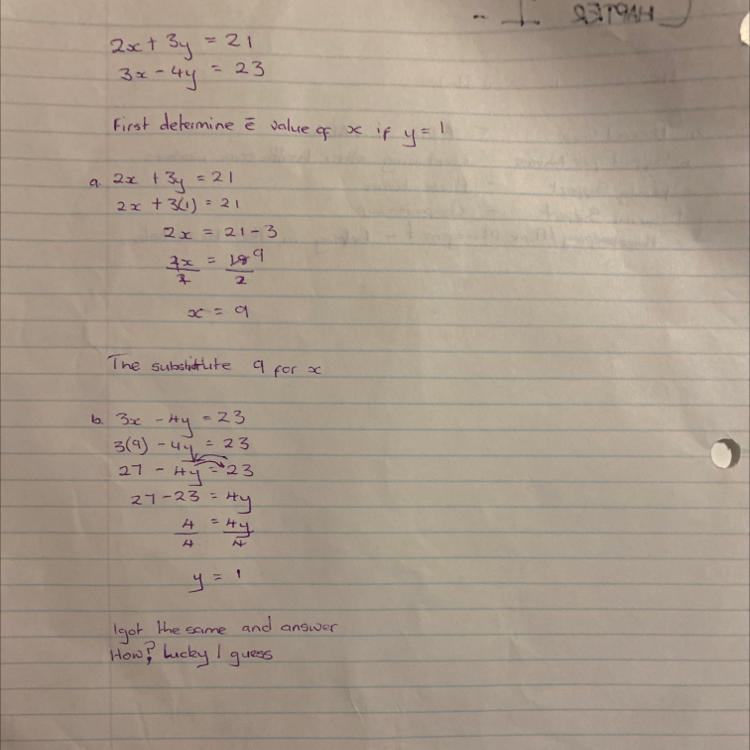 CHAPTER I -
2x + 3y = 21
3x - 4y = 23
First determine ē value of x if y = 1
a. 2x + 3y = 21
2x + 3(1) = 21
2x = 21 - 3
2x = 18 9
2 2
x = 9
The substitute 9 for x
b. 3x - 4y = 23
3(9) - 4y = 23
27 - 4y = 23
27 - 23 = 4y
4 = 4y
4 4
y = 1
I got the same and answer
How? Lucky I guess